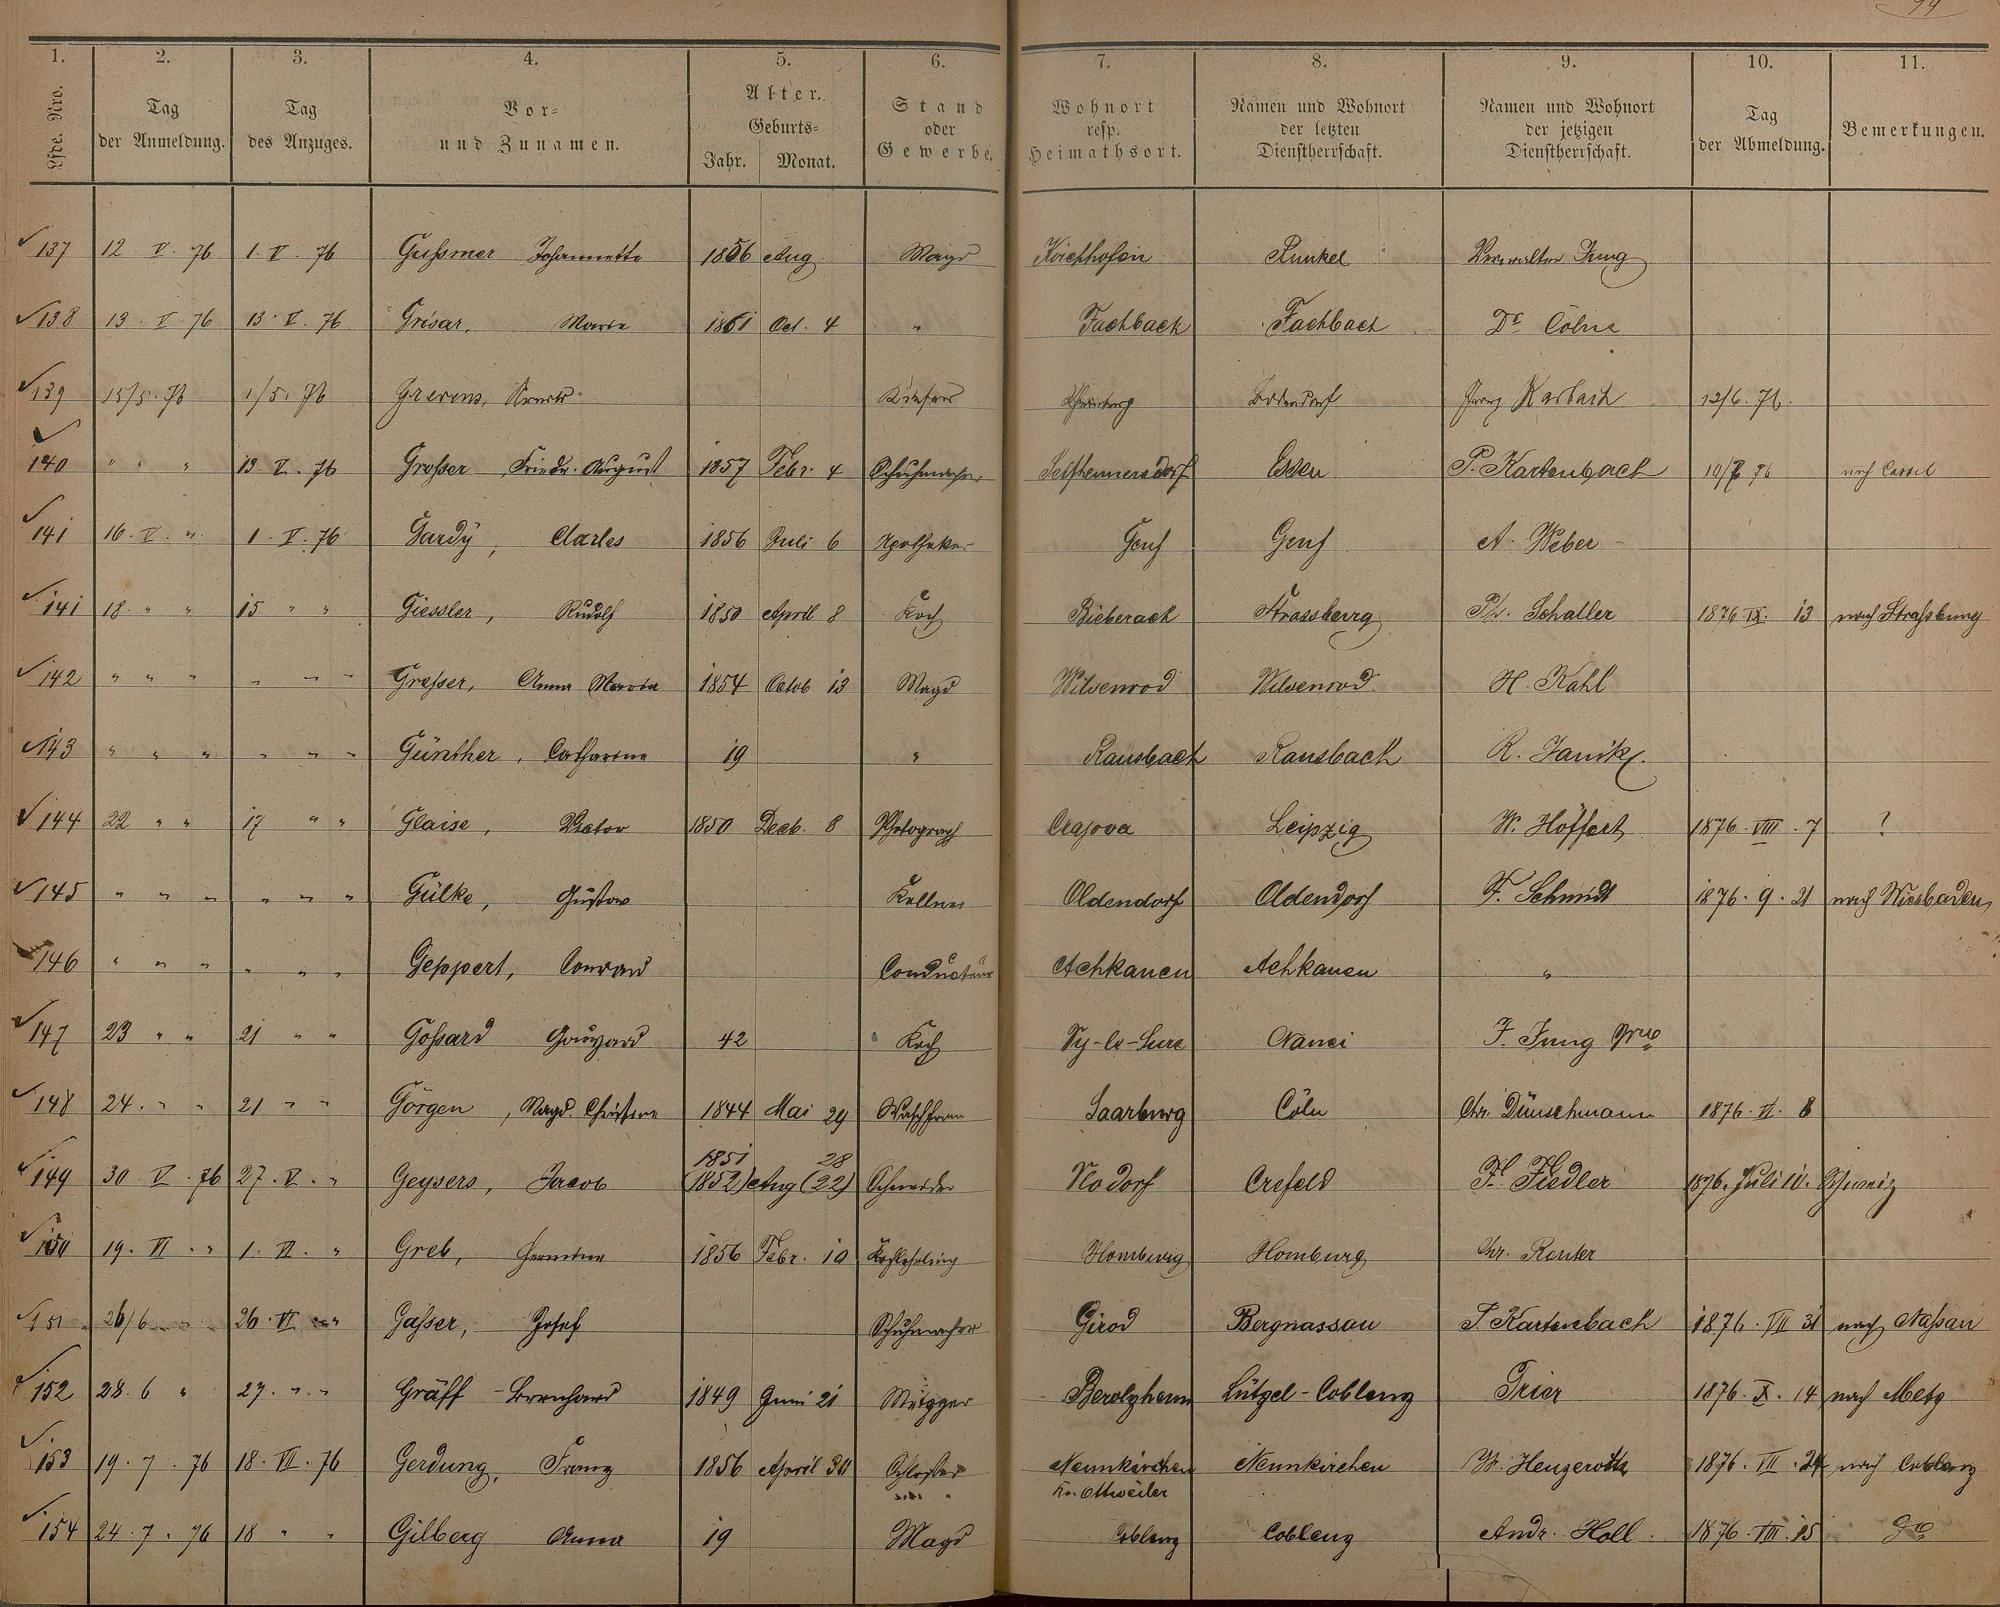 94
1. 2. 3. 4. 5. 6. 7. 8. 9. 10. 11.
Lfde. Nro. Tag der Anmeldung. Tag des Anzuges. Vor- und Zunamen. Alter. Geburts- Jahr. Monat. Stand oder Gewerbe. Wohnort resp. Heimathsort. Namen und Wohnort der letzten Dienstherrschaft. Namen und Wohnort der jetzigen Dienstherrschaft. Tag der Abmeldung. Bemerkungen.
137 12. V. 76 1. V. 76 Gußmer Johannette 1856 Aug Magd Kirchhofen Runkel Verwalter Jung
138 13. V. 76 13. V. 76 Grisar, Maria 1861 Oct. 4 " Fachbach Fachbach Dr Cöln
139 15/5. 76 1/5. 76 Grevens, Küfer Bodendorf Franz Karbach 12/6. 76.
140 " " " 13. V. 76 Großer, Friedr. August 1857 Febr. 4 Schuhmacher Seifhennersdorf Essen P. Kartenbach 10/7 76 nach Cassel
141 16. V. " 1. V. 76 Gardÿ, Charles 1856 Juli 6 Apotheker Genf Genf A. Weber
141 18. " " 15 " " Giessler, Rudolf 1850 April 8 Koch Bieberach Strassberg Ph. Schaller 1876 IX. 13 nach Straßburg
142 " " " " " " Gresser, Anna Maria 1854 Octob 13 Magd Wilsenrod Wilsenrod H. Kahl
143 " " " " " " Günther, Catharine 19 " Ransbach Ransbach R. Janik
144 22 " " 17 " " Glaise, Victor 1850 Decb. 8 Photograph Crajova Leipzig W. Höffert 1876. VIII. 7 ?
145 " " " " " " Gülke, Gustav Kellner Oldendorf Oldendorf F. Schmidt 1876. 9. 21 nach Wiesbaden
146 " " " " " " Geppert, Conrad Conducteur Achkanen Achkanen "
147 23 " " 21 " " Goßard Gouzard 42 Koch Vy-le-Lure Nanci F. Jung Wwe
148 24. " " 21 " " Görgen, Magd. Christine 1844 Mai 29 Waschfrau Saarburg Cöln Chr. Dünschmann 1876. VI. 8
149 30. V. 76 27. V. " Geysers, Jacob 1851 (1852) Aug 28 (22) Schneider Crefeld F. Fiedler 1876. Juli 10. Schweiz
150 19. VI. " 1. VI. " Greb, Hermine 1856 Febr. 10 Kochlehrling Homburg Homburg Chr. Reuter
151 26/6 " 26. VI " Gaßer, Josef Schuhmacher Girod Bergnassau P. Kartenbach 1876. VII 31 nach Naßau
152 28. 6 " 27. " " Gräff Bernhard 1849 Juni 21 Metzger Berolzheim Lützel-Coblenz Trier 1876. X. 14 nach Metz
153 19. 7. 76 18. VII. 76 Gerdung, Franz 1856 April 30 Schlosser Neunkirchen Kr. Ottweiler Neunkirchen W. Heugeroth 1876. VII. 24 nach Coblenz
154 24. 7. 76 18 " " Gilberg Anna 19 Magd Coblenz Coblenz Andr. Holl 1876. VIII. 15 do